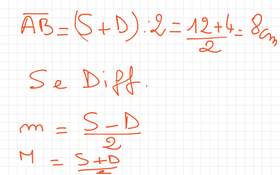 AB = (S+D) : 2 = 12+4/2 = 8cm
S e Diff.
m = S-D/2
M = S+D/2